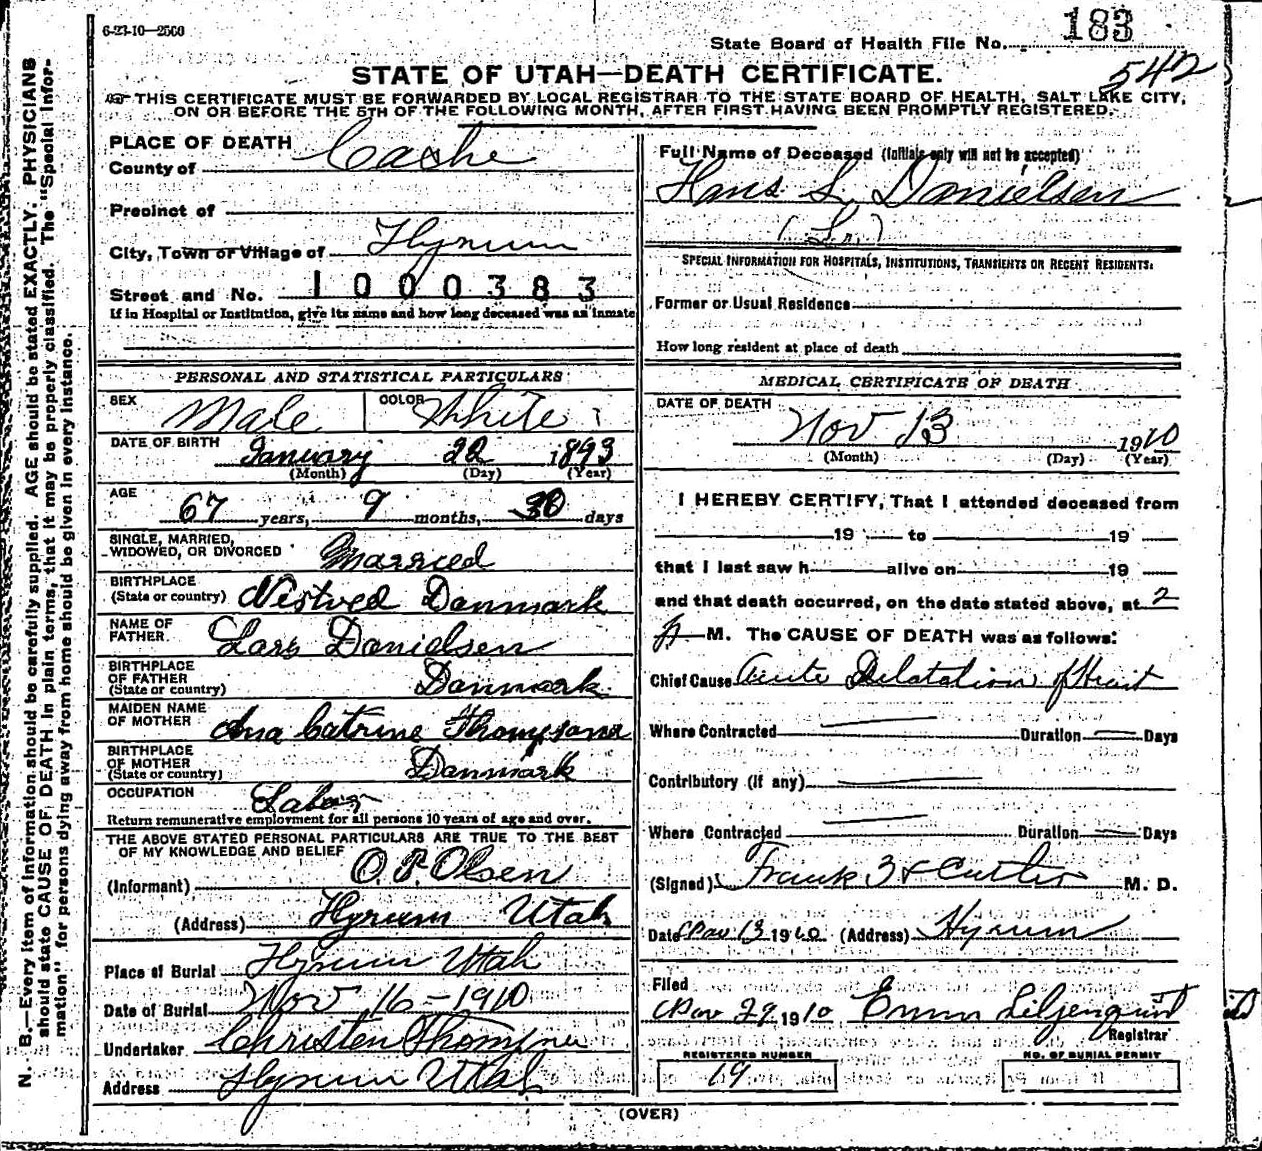 6-23-10—2500
183
State Board of Health File No.
542
STATE OF UTAH—DEATH CERTIFICATE.
THIS CERTIFICATE MUST BE FORWARDED BY LOCAL REGISTRAR TO THE STATE BOARD OF HEALTH, SALT LAKE CITY,
ON OR BEFORE THE 5TH OF THE FOLLOWING MONTH, AFTER FIRST HAVING BEEN PROMPTLY REGISTERED.
N. B.—Every item of information should be carefully supplied. AGE should be stated EXACTLY. PHYSICIANS
should state CAUSE OF DEATH in plain terms, that it may be properly classified. The "Special Infor-
mation" for persons dying away from home should be given in every instance.
PLACE OF DEATH
County of Cashe
Precinct of
City, Town or Village of Hyrum
Street and No. 1000383
If in Hospital or Institution, give its name and how long deceased was an inmate
PERSONAL AND STATISTICAL PARTICULARS
SEX Male COLOR White
DATE OF BIRTH January 22 1893
(Month) (Day) (Year)
AGE 67 years, 9 months, 30 days
SINGLE, MARRIED,
WIDOWED, OR DIVORCED Married
BIRTHPLACE
(State or country) Nistved Danmark
NAME OF
FATHER Lars Danielsen
BIRTHPLACE
OF FATHER
(State or country) Danmark
MAIDEN NAME
OF MOTHER Ana Catrine
BIRTHPLACE
OF MOTHER
(State or country) Danmark
OCCUPATION Labor
Return remunerative employment for all persons 10 years of age and over.
THE ABOVE STATED PERSONAL PARTICULARS ARE TRUE TO THE BEST
OF MY KNOWLEDGE AND BELIEF
(Informant) O. P. Olsen
(Address) Hyrum Utah
Place of Burial Hyrum Utah
Date of Burial Nov 16-1910
Undertaker Christen
Address Hyrum Utah
Full Name of Deceased (Initials only will not be accepted)
Hans L. Danielsen
(Sr.)
SPECIAL INFORMATION FOR HOSPITALS, INSTITUTIONS, TRANSIENTS OR RECENT RESIDENTS:
Former or Usual Residence
How long resident at place of death
MEDICAL CERTIFICATE OF DEATH
DATE OF DEATH
Nov 13 1910
(Month) (Day) (Year)
I HEREBY CERTIFY, That I attended deceased from
19 to 19
that I last saw h alive on 19
and that death occurred, on the date stated above, at 2
P M. The CAUSE OF DEATH was as follows:
Chief Cause Acute Dilatation of Heart
Where Contracted Duration Days
Contributory (if any)
Where Contracted Duration Days
(Signed) Frank M. D.
Date Nov 13 1910 (Address) Hyrum
Filed
Nov 29 1910 Emma Liljenquist
Registrar
REGISTERED NUMBER
19
NO. OF BURIAL PERMIT
(OVER)